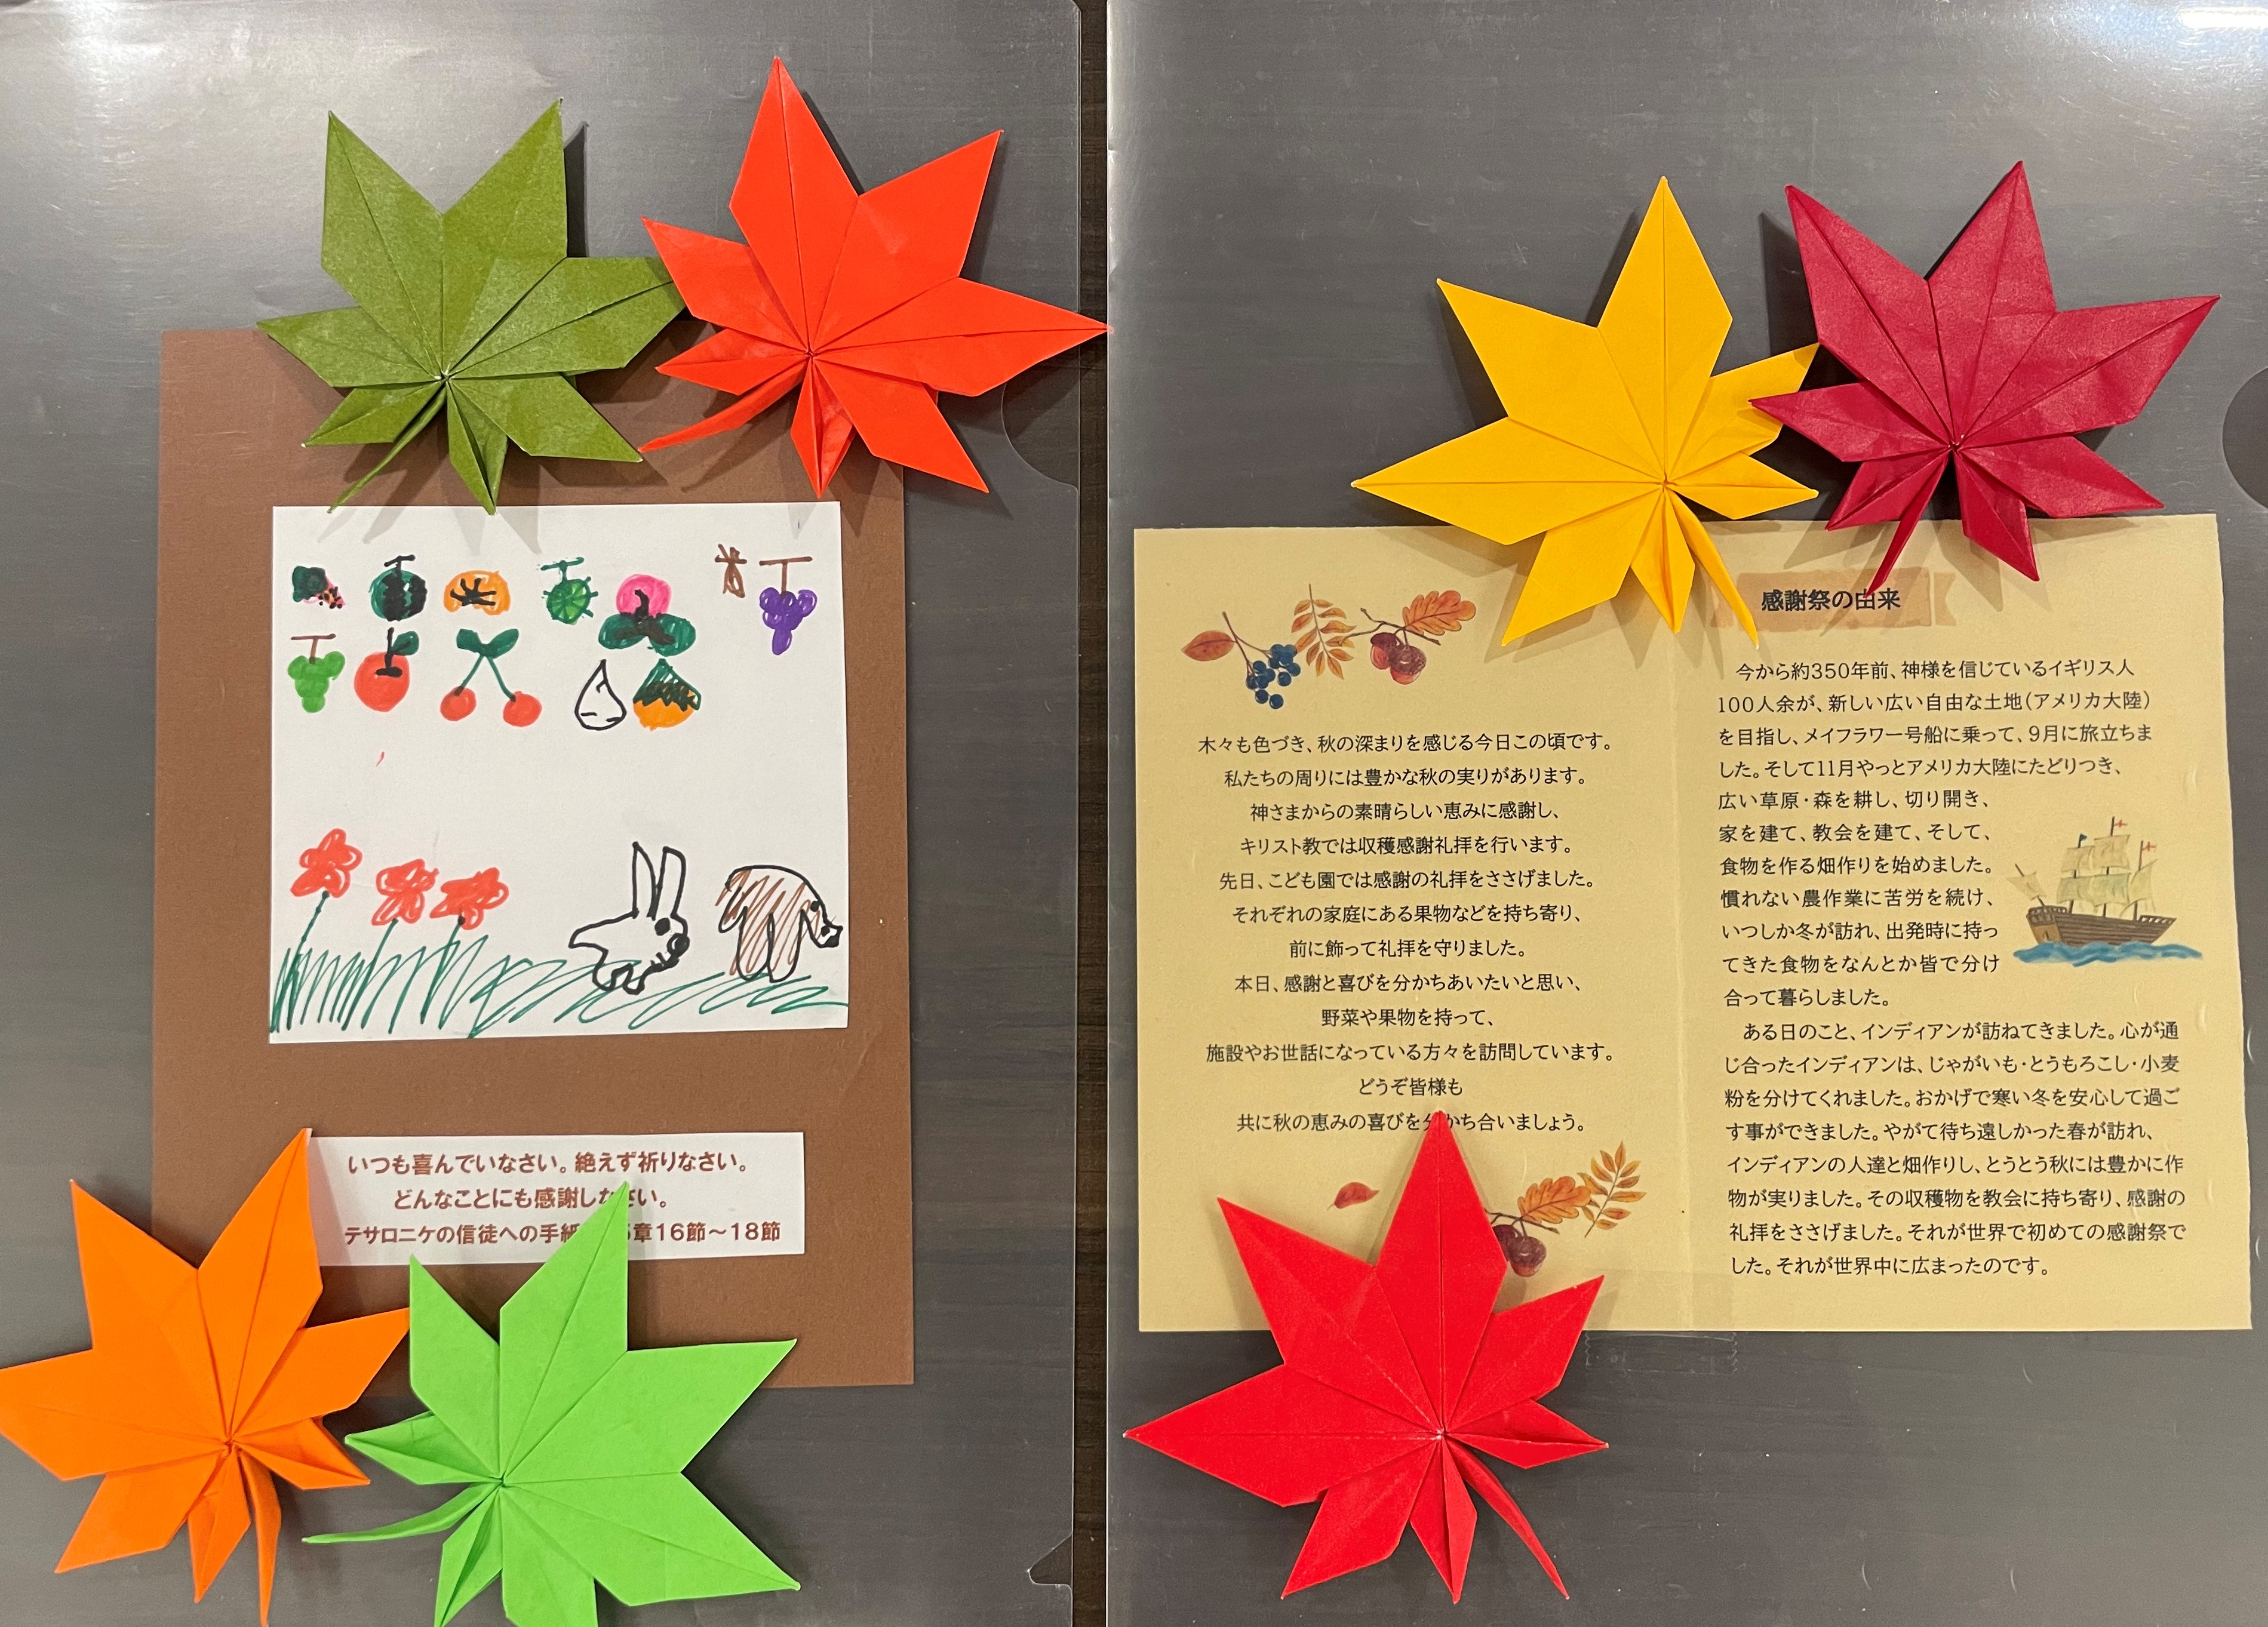 いつも喜んでいなさい。絶えず祈りなさい。
どんなことにも感謝しなさい。
テサロニケの信徒への手紙 5章16節～18節
木々も色づき、秋の深まりを感じる今日この頃です。
私たちの周りには豊かな秋の実りがあります。
神さまからの素晴らしい恵みに感謝し、
キリスト教では収穫感謝礼拝を行います。
先日、こども園では感謝の礼拝をささげました。
それぞれの家庭にある果物などを持ち寄り、
前に飾って礼拝を守りました。
本日、感謝と喜びを分かちあいたいと思い、
野菜や果物を持って、
施設やお世話になっている方々を訪問しています。
どうぞ皆様も
共に秋の恵みの喜びを分かち合いましょう。
感謝祭の由来
今から約350年前、神様を信じているイギリス人
100人余が、新しい広い自由な土地（アメリカ大陸）
を目指し、メイフラワー号船に乗って、9月に旅立ちま
した。そして11月やっとアメリカ大陸にたどりつき、
広い草原・森を耕し、切り開き、
家を建て、教会を建て、そして、
食物を作る畑作りを始めました。
慣れない農作業に苦労を続け、
いつしか冬が訪れ、出発時に持っ
てきた食物をなんとか皆で分け
合って暮らしました。
ある日のこと、インディアンが訪ねてきました。心が通
じ合ったインディアンは、じゃがいも・とうもろこし・小麦
粉を分けてくれました。おかげで寒い冬を安心して過ご
す事ができました。やがて待ち遠しかった春が訪れ、
インディアンの人達と畑作りし、とうとう秋には豊かに作
物が実りました。その収穫物を教会に持ち寄り、感謝の
礼拝をささげました。それが世界で初めての感謝祭で
した。それが世界中に広まったのです。